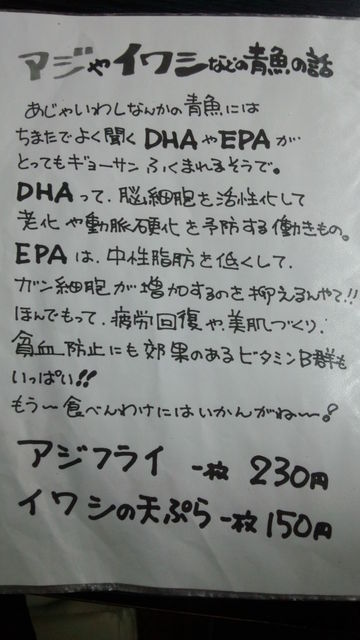 アジやイワシなどの青魚の話
あじゃいわしなんかの青魚には
ちまたでよく聞くDHAやEPAが
とってもギョーサンふくまれるそうで。
DHAって、脳細胞を活性化して
老化や動脈硬化を予防する働きもの。
EPAは、中性脂肪を低くして、
ガン細胞が増加するのを抑えるんやて!!
ほんでもって、疲労回復や、美肌づくり、
貧血防止にも効果のあるビタミンB群も
いっぱい!!
もう〜食べんわけにはいかんがね〜!
アジフライ 一枚 230円
イワシの天ぷら 一枚 150円